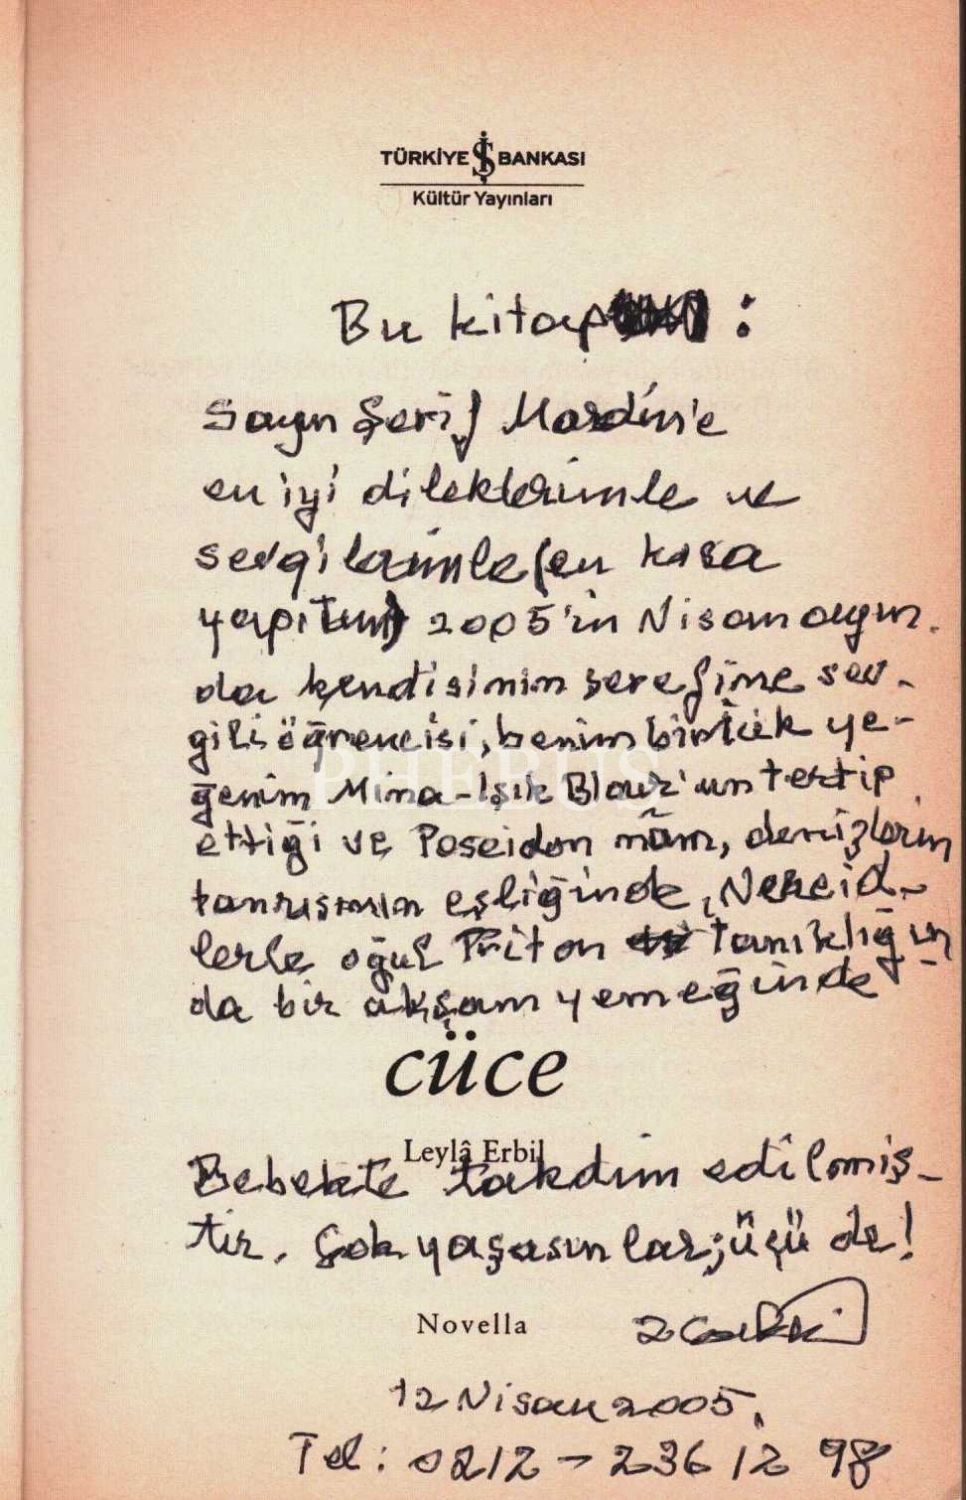 TÜRKİYE İŞ BANKASI
Kültür Yayınları
Bu kitap :
Sayın Şerif Mardin'e
en iyi dileklerimle ve
sevgilerimle (en kısa
yapıtım) 2005'in Nisan ayın-
da kendisinin şerefine sev-
gili öğrencisi, benim biricik ye-
ğenim Mina-Işık Blour'un tertip
ettiği ve Poseidon nâm, denizlerin
tanrısının eşliğinde, Nereid-
lerle oğul Triton tanıklığın-
da bir akşam yemeğinde
PHEBUS
cüce
Leylâ Erbil
Bebekte takdim edilmiş-
tir. Çok yaşasınlar; üçü de!
Novella
12 Nisan 2005.
Tel: 0212 - 236 12 98